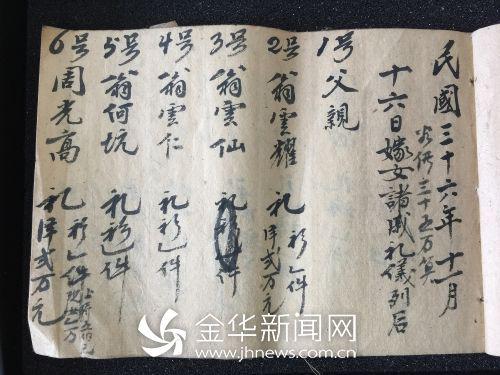 民國三十六年十一月
三十五万算
十六日嫁女諸戚礼儀列后
1号父親
2号翁雲耀 礼 衫一件 洋弍万元
3号翁雲仙 礼衫一件
4号翁雲仁 礼衫一件
5号翁何坑 礼衫一件
6号周光高 礼 衫一件 洋弍万元
金华新闻网
www.jhnews.com.cn